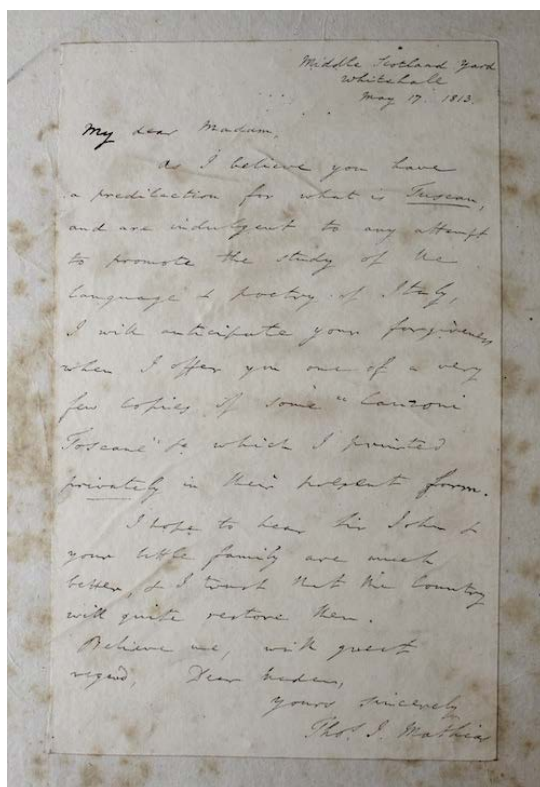 Middle Scotland Yard
Whitehall
May 17. 1813.
My dear Madam,
As I believe you have
a predilection for what is Tuscan,
and are indulgent to any attempt
to promote the study of the
language & poetry of Italy,
I will anticipate your forgiveness
when I offer you one of a very
few copies of some "Canzoni
Toscane" &c which I printed
privately in their present form.
I hope to hear Sir John &
your little family are much
better, & I trust that the Country
will quite restore them.
Believe me, with great
regard, Dear Madam,
yours sincerely
Thos. J. Mathias